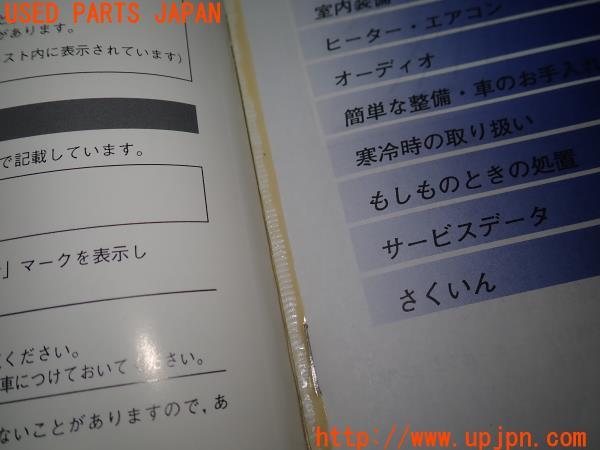 USED PARTS JAPAN
があります。
スト内に表示されています)
で記載しています。
」マークを表示し
ください。
車につけておいてください。
ないことがありますので，あ
室内装備
ヒーター・エアコン
オーディオ
簡単な整備・車のお手入れ
寒冷時の取り扱い
もしものときの処置
サービスデータ
さくいん
http://www.upjpn.com/